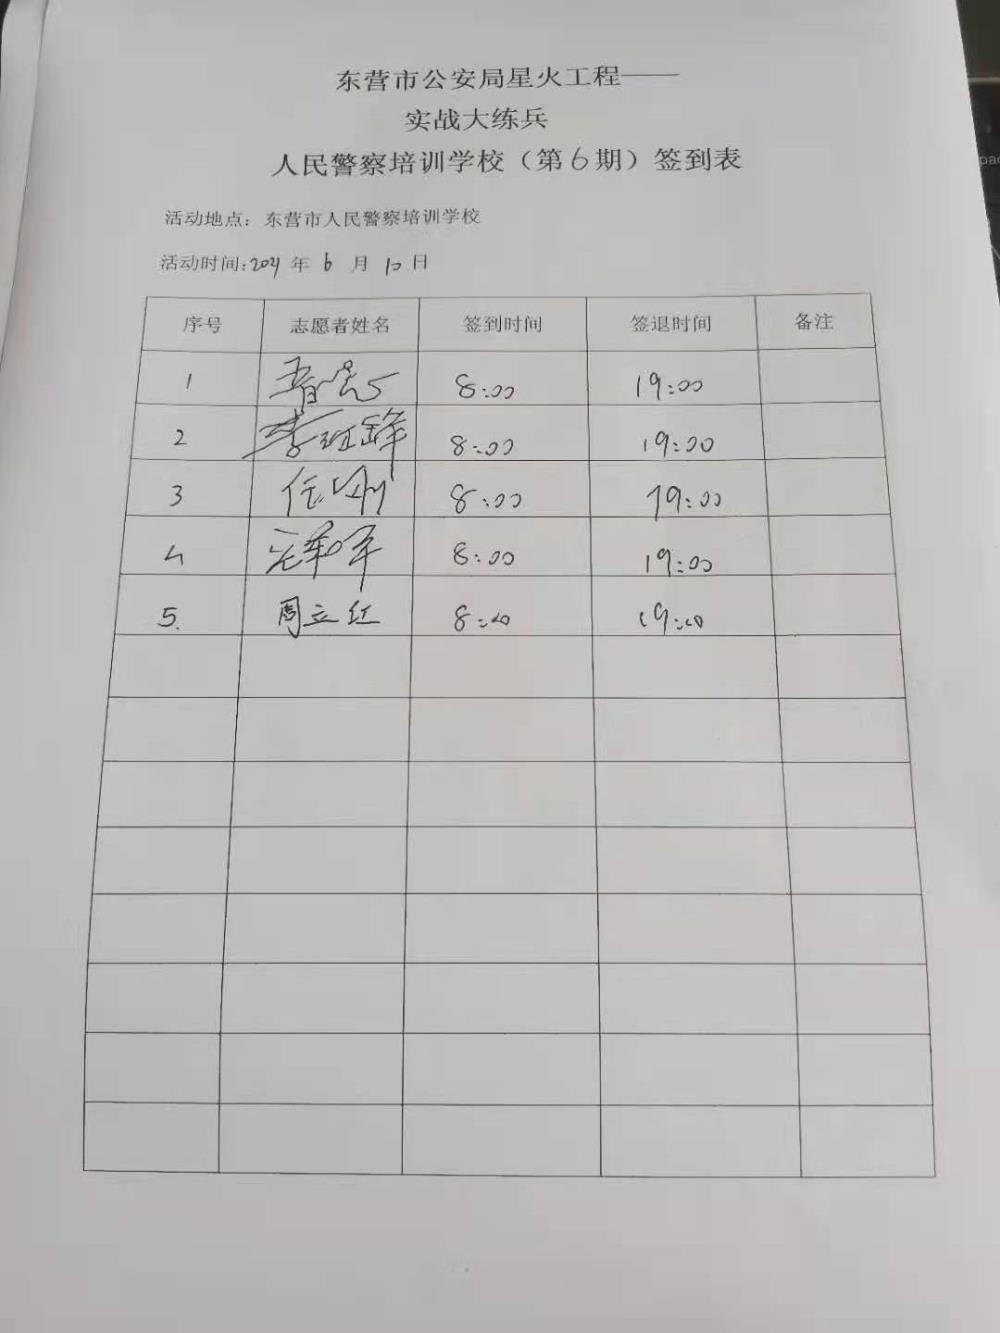 东营市公安局星火工程——
实战大练兵
人民警察培训学校（第6期）签到表
活动地点：东营市人民警察培训学校
活动时间:2021年 6 月 10 日
序号 志愿者姓名 签到时间 签退时间 备注
1 8:00 19:00
2 8:00 19:00
3 任刚 8:00 19:00
4 8:00 19:00
5. 周立红 8:00 19:00